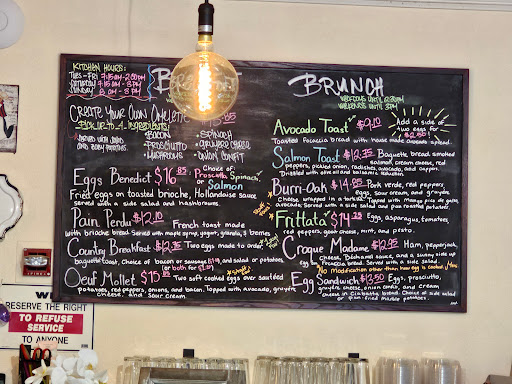 KITCHEN HOURS:
BRUNCH
CREATE YOUR OWN OMELETTE
PICK UP TO 4 INGREDIENTS:
BACON
PROSCIUTTO
MUSHROOMS
SPINACH
GRUYERE CHEESE
ONION CONFIT
Egg Benedict $16.85 Choice of
Prosciutto, Spinach,
or Salmon
Fried eggs on toasted brioche, Hollandaise sauce
served with a side salad and hashbrowns.
Pain Perdu $12.10 French toast made
with brioche bread. Served with maple syrup, yogurt, granola, & berries
Country Breakfast $12.75 Two eggs made to order,
baguette toast, Choice of bacon or sausage and salad or potatoes,
Oeuf Mollet $15 Two soft cooked eggs over sautéed
potatoes, red peppers, onions, and bacon. Topped with avocado, gruyere
cheese, and sour cream.
Avocado Toast $9.10
Toasted Focaccia bread with house made avocado spread.
Add a side of
two eggs for
Salmon Toast $12.75 Baguette bread, smoked
salmon, cream cheese, red
peppers, pickled onion, radishes, avocado, and capers.
Drizzled with olive oil and balsamic reduction.
Burri-Oah $14.85 Pork verde, red peppers,
eggs, sour cream, and gruyere
cheese, wrapped in a tortilla. Topped with mango pico de gallo,
avocado. Served with a side salad and pan roasted potatoes.
Frittata $14.25 Eggs, asparagus, tomatoes,
red peppers, goat cheese, mint, and pesto.
Croque Madame $12.95 Ham, pepperjack
cheese, Béchamel sauce, and a sunny side up
egg on Focaccia bread. Served with a side salad.
No modification other than how egg is cooked!
Egg Sandwich $13.50 Eggs, prosciutto,
gruyere cheese, onion confit, and cream
cheese in Ciabatta bread. Choice of side salad
or pan-fried market potatoes.
RESERVE THE RIGHT
TO REFUSE
SERVICE
TO ANYONE